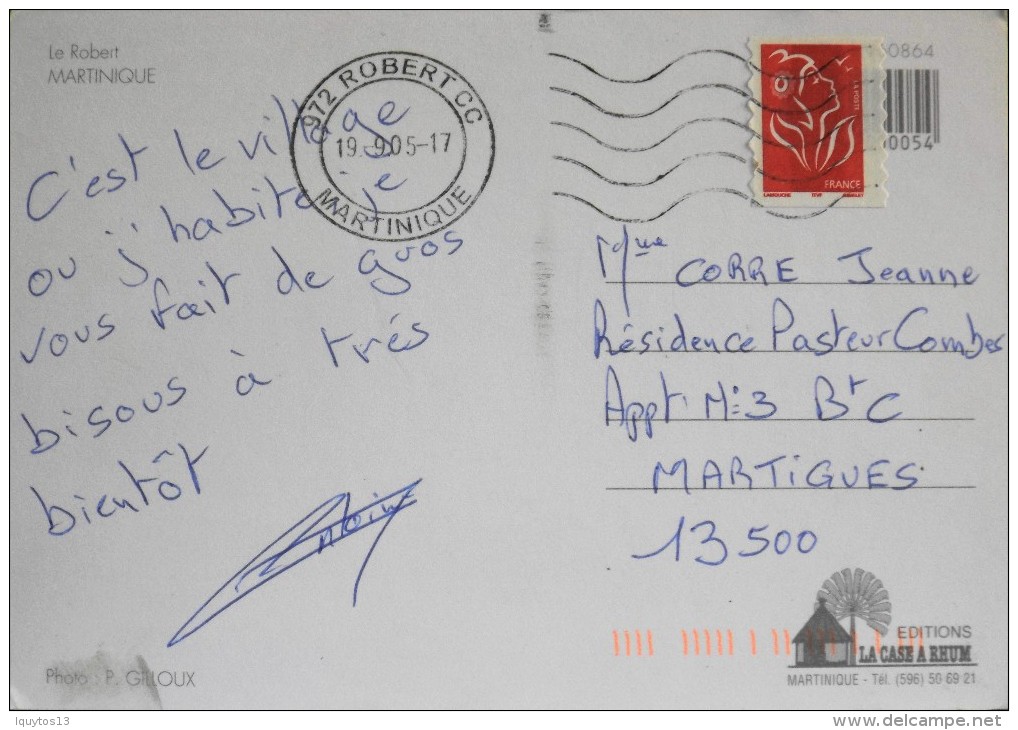 Le Robert
MARTINIQUE
C'est le village
ou j'habite je
vous fait de gros
bisous à très
bientôt
Photo : P. GILLOUX
972 ROBERT CC
19-9.05-17
MARTINIQUE
0864
0054
LA POSTE
FRANCE
Mme CORRE Jeanne
Résidence Pasteur Combes
Appt N:3 Bt C
MARTIGUES
13500
EDITIONS
LA CASE A RHUM
MARTINIQUE - Tél. (596) 50 69 21
lquytos13
www.delcampe.net